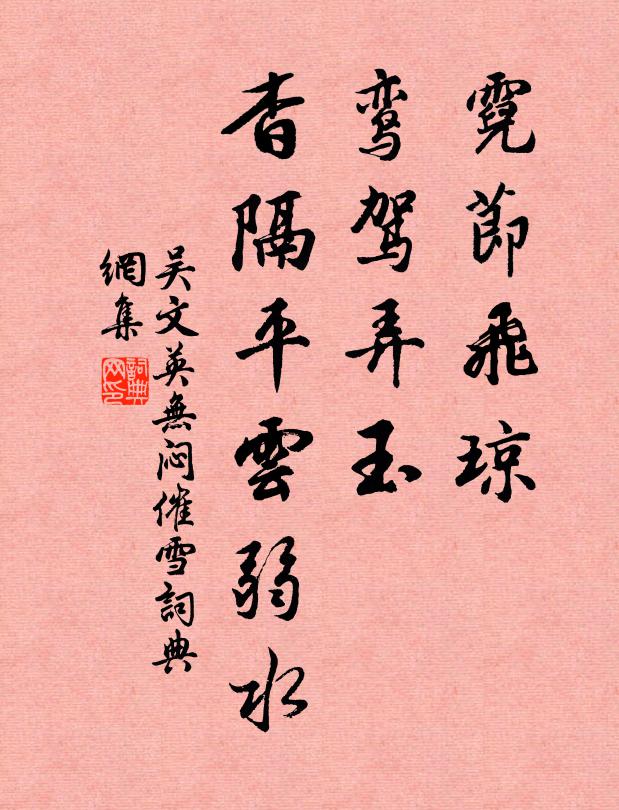 霓節飛琼
鸾驾弄玉
杳隔平雲弱水
吴文英無闷催雪詞典
網集
詞典
网印